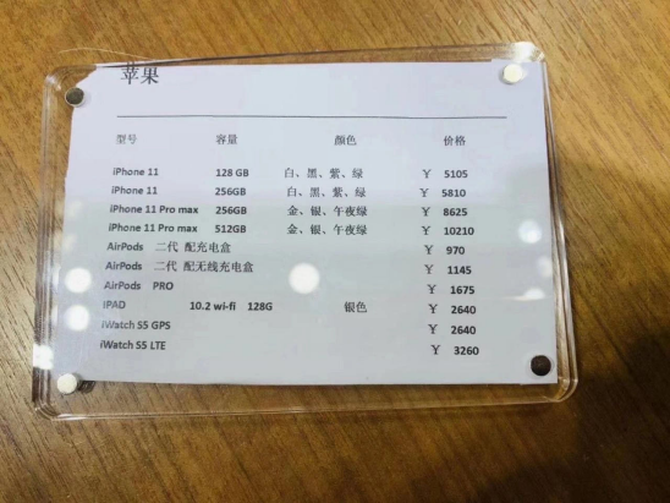 苹果
型号 容量 颜色 价格
iPhone 11 128 GB 白、黑、紫、绿 ¥ 5105
iPhone 11 256GB 白、黑、紫、绿 ¥ 5810
iPhone 11 Pro max 256GB 金、银、午夜绿 ¥ 8625
iPhone 11 Pro max 512GB 金、银、午夜绿 ¥ 10210
AirPods 二代 配充电盒 ¥ 970
AirPods 二代 配无线充电盒 ¥ 1145
AirPods PRO ¥ 1675
IPAD 10.2 wi-fi 128G 银色 ¥ 2640
iWatch S5 GPS ¥ 2640
iWatch S5 LTE ¥ 3260